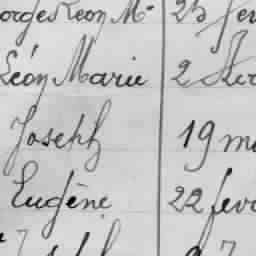 orges Leon M- 25 fev
Léon Marie 2
Joseph 19 ma
Eugène 22 fevr